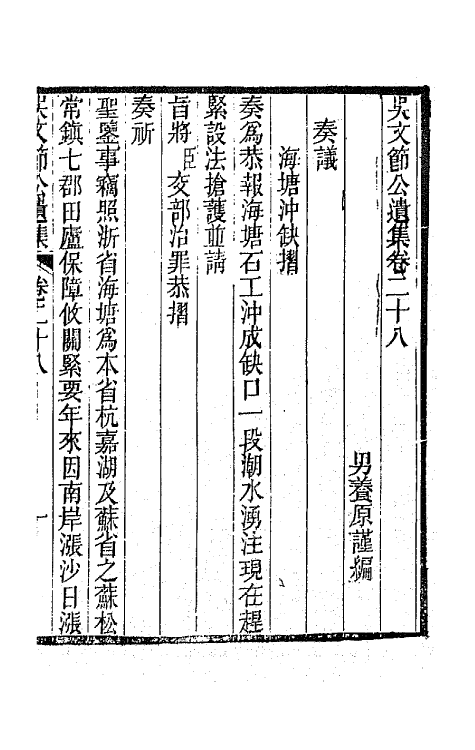 吳文節公遺集卷二十八
男養原謹編
奏議
海塘沖缺摺
奏爲恭報海塘石工沖成缺口一段潮水湧注現在趕
緊設法搶護並請
旨將臣交部治罪恭摺
奏祈
聖鑒事竊照浙省海塘爲本省杭嘉湖及蘇省之蘇松
常鎭七郡田廬保障攸關緊要年來因南岸漲沙日漲
吳文節公遺集
卷二十八
一